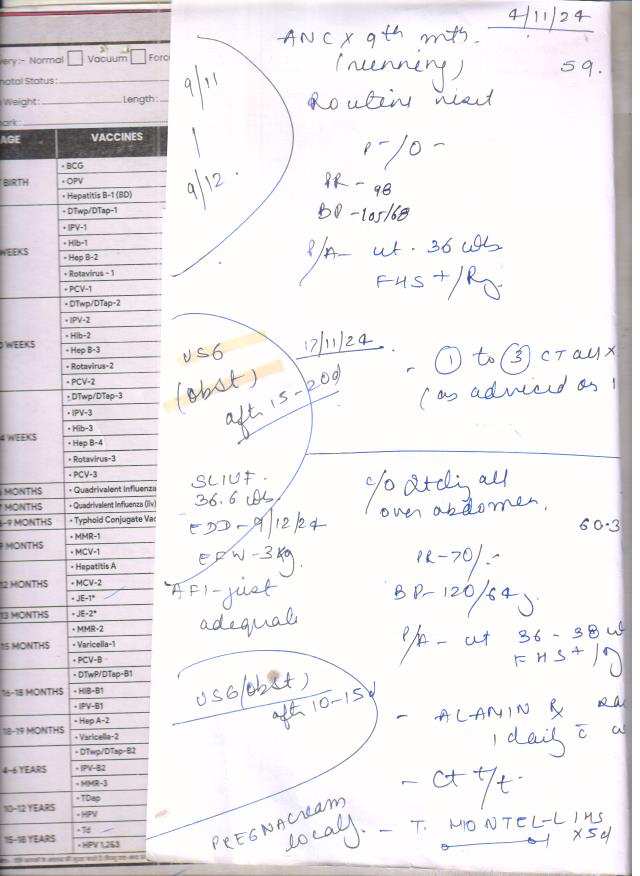 very:- Normal Vacuum Forc
natal Status:
Weight: Length:
ark:
AGE VACCINES
BIRTH
• BCG
• OPV
• Hepatitis B-1 (BD)
WEEKS
• DTwp/DTap-1
• IPV-1
• Hib-1
• Hep B-2
• Rotavirus - 1
• PCV-1
WEEKS
• DTwp/DTap-2
• IPV-2
• Hib-2
• Hep B-3
• Rotavirus-2
• PCV-2
4 WEEKS
• DTwp/DTap-3
• IPV-3
• Hib-3
• Hep B-4
• Rotavirus-3
• PCV-3
MONTHS • Quadrivalent Influenza
MONTHS • Quadrivalent Influenza (iiv)
-9 MONTHS • Typhoid Conjugate Vac
MONTHS
• MMR-1
• MCV-1
12 MONTHS
• Hepatitis A
• MCV-2
• JE-1*
13 MONTHS • JE-2*
15 MONTHS
• MMR-2
• Varicella-1
• PCV-B
16-18 MONTHS
• DTwP/DTap-B1
• HIB-B1
• IPV-B1
18-19 MONTHS
• Hep A-2
• Varicella-2
4-6 YEARS
• DTwp/DTap-B2
• IPV-B2
• MMR-3
10-12 YEARS
• TDap
• HPV
15-18 YEARS
• Td
• HPV 1,2&3
4/11/24
ANC X 9th mth.
(running)
59.
Routine visit
9/11
9/12.
P-/O-
PR - 98
BP - 105/68
P/A - ut. 36 wks
FHS +/Rg
USG
(obst)
after 15-20d
17/11/24
- ① to ③ CT all X
(as adviced on 1
SLIUF.
36.6 wks
EDD - 9/12/24
EFW - 3 kg.
AFI - just
adequate
c/o Itching all
over abdomen.
60.3
PR - 70/.
BP - 120/64
P/A - ut 36 - 38 w
FHS +/R
USG (obst)
after 10-15d
- ALAMIN
1 daily c̄
- Ct t/t.
PREGNACream
locally.
- T. MONTEL-L 1HS
X5d